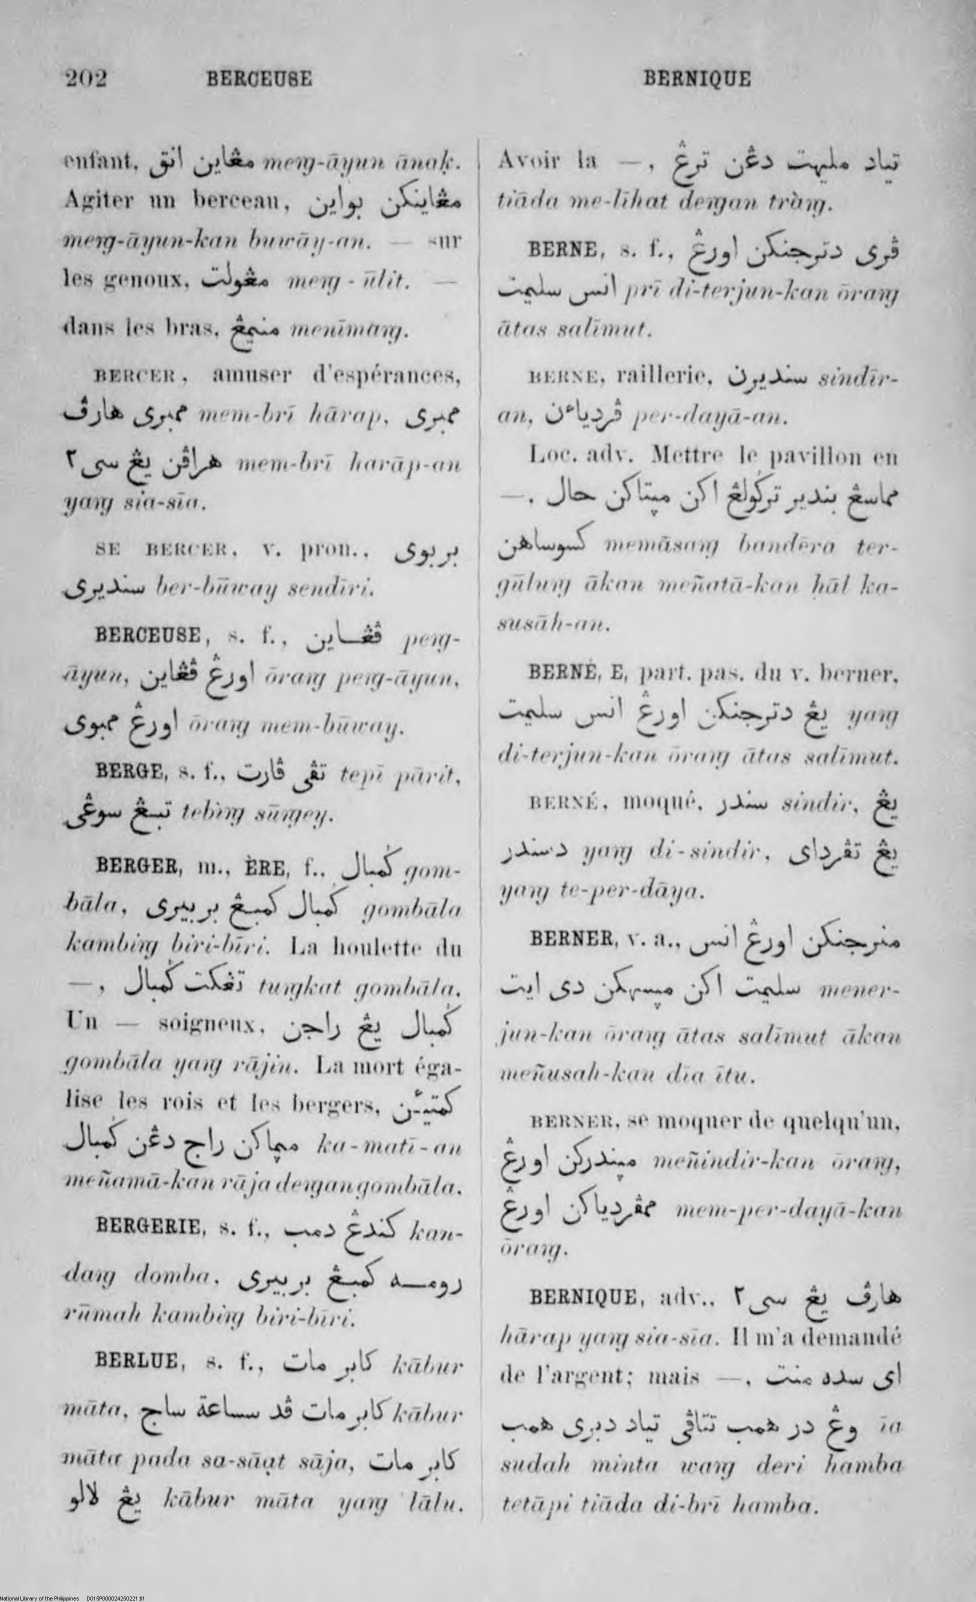 202 BERCEUSE BERNIQUE
enfant, مڠاين انق meng-āyun ānaḳ.
Agiter un berceau, مڠاينكن بواين
meng-āyun-kan buwāy-an. — sur
les genoux, مڠولت meng-ūlit. —
dans les bras, منيمڠ menīmang.
BERCER, amuser d'espérances,
ممبرى هارڤ mem-brī hārap, ممبرى
هراڤن يڠ سى٢ mem-brī harāp-an
yang sia-sīa.
SE BERCER, v. pron., بربوى
سنديرى ber-būway sendīri.
BERCEUSE, s. f., ڤڠاين peng-
āyun, اورڠ ڤڠاين ōrang peng-āyun,
اورڠ ممبوى ōrang mem-būway.
BERGE, s. f., تڤى ڤارت tepī pārit,
تبيڠ سوڠى tebìng sūngey.
BERGER, m., ÈRE, f., ڬمبال gom-
bāla, ڬمبال كمبيڠ بربيرى gombāla
kambing biri-bīri. La houlette du
—, تڠكت ڬمبال tungkat gombāla.
Un — soigneux, ڬمبال يڠ راجن
gombāla yang rājin. La mort éga-
lise les rois et les bergers, كمتيئن
مڽماكن راج دڠن ڬمبال ka-matī-an
meñamā-kan rāja dengan gombāla.
BERGERIE, s. f., كندڠ دمب kan-
dang domba, رومه كمبيڠ بربيرى
rūmah kambing biri-bīri.
BERLUE, s. f., كابر مات kābur
māta, كابر مات ڤد سساعة ساج kābur
māta pada sa-sāạt sāja, كابر مات
يڠ لالو kābur māta yang lālu.
Avoir la —, تياد مليهت دڠن ترڠ
tiāda me-līhat dengan tràng.
BERNE, s. f., ڤرى دترجنكن اورڠ
اتس سليمت prī di-terjun-kan ōrang
ātas salīmut.
BERNE, raillerie, سنديرن sindīr-
an, ڤردياءن per-dayā-an.
Loc. adv. Mettre le pavillon en
—, مماسڠ بندير ترڬولڠ اكن مڽتاكن حال
كسوساهن memāsang bandēra ter-
gūlung ākan meñatā-kan ḥāl ka-
susāh-an.
BERNÉ, E, part. pas. du v. berner,
يڠ دترجنكن اورڠ اتس سليمت yang
di-terjun-kan ōrang ātas salīmut.
BERNÉ, moqué, سندر sindir, يڠ
دسندر yang di-sindir, يڠ تڤرداى
yang te-per-dāya.
BERNER, v. a., منرجنكن اورڠ اتس
سليمت اكن مڽسهكن دى ايت mener-
jun-kan ōrang ātas salīmut ākan
meñusah-kan dīa ītu.
BERNER, se moquer de quelqu'un,
مڽندركن اورڠ meñindir-kan ōrang,
ممڤردياكن اورڠ mem-per-dayā-kan
ōrang.
BERNIQUE, adv., هارڤ يڠ سى٢
hārap yang sia-sīa. Il m'a demandé
de l'argent; mais —, اى سده منت
وڠ در همب تتاڤى تياد دبرى همب īa
sudah minta wang deri hamba
tetāpi tiāda di-brī hamba.
National Library of the Philippines